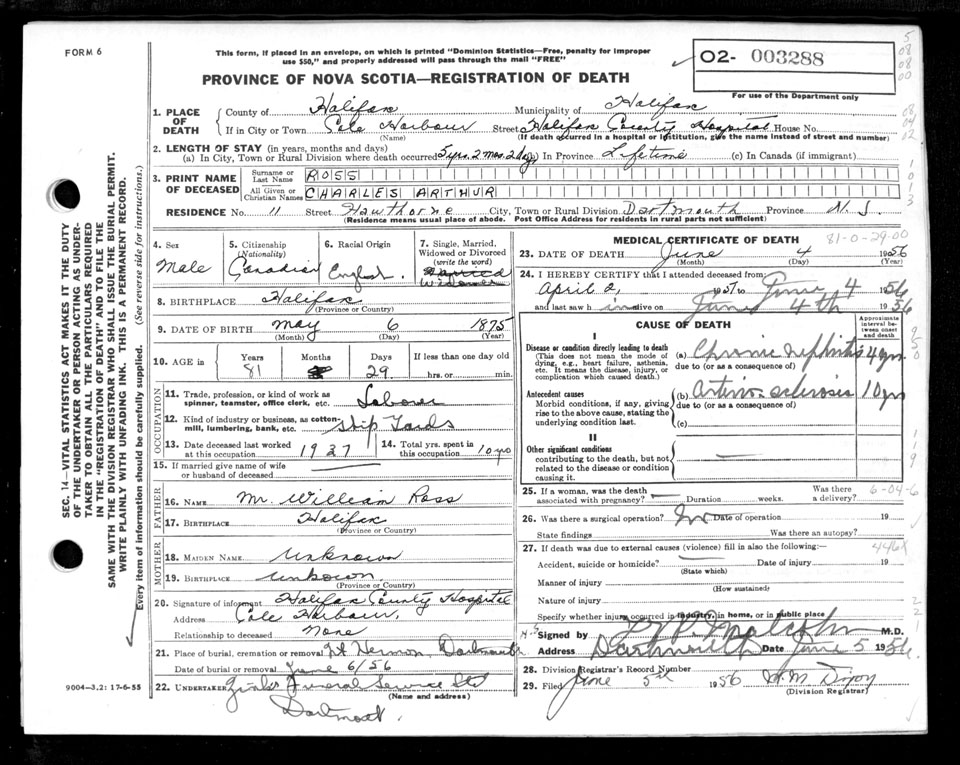 FORM 6
This form, if placed in an envelope, on which is printed "Dominion Statistics—Free, penalty for improper
use $50," and properly addressed will pass through the mail "FREE"
02- 003288
For use of the Department only
PROVINCE OF NOVA SCOTIA—REGISTRATION OF DEATH
1. PLACE OF DEATH
County of Halifax Municipality of Halifax
If in City or Town Cole Harbour Street Halifax County Hospital House No.
(Name) (If death occurred in a hospital or institution, give the name instead of street and number)
2. LENGTH OF STAY (in years, months and days)
(a) In City, Town or Rural Division where death occurred 5 yrs. 2 mos. 2 dys (b) In Province Lifetime (c) In Canada (if immigrant)
3. PRINT NAME OF DECEASED
Surname or Last Name ROSS
All Given or Christian Names CHARLES ARTHUR
RESIDENCE No. 11 Street Hawthorne City, Town or Rural Division Dartmouth Province N. S.
(Residence means usual place of abode. Post Office Address for residents in rural parts not sufficient)
4. Sex
Male
5. Citizenship (Nationality)
Canadian
6. Racial Origin
English.
7. Single, Married, Widowed or Divorced (write the word)
Married
Widower
8. BIRTHPLACE Halifax
(Province or Country)
9. DATE OF BIRTH May 6 1875
(Month) (Day) (Year)
10. AGE in Years Months Days If less than one day old
81 29 hrs. or min.
OCCUPATION
11. Trade, profession, or kind of work as
spinner, teamster, office clerk, etc. Labour
12. Kind of industry or business, as cotton-
mill, lumbering, bank, etc. Ship Yards
13. Date deceased last worked
at this occupation 1937
14. Total yrs. spent in
this occupation 10 yrs
15. If married give name of wife
or husband of deceased
FATHER
16. NAME Mr. William Ross
17. BIRTHPLACE Halifax
(Province or Country)
MOTHER
18. MAIDEN NAME Unknown
19. BIRTHPLACE Unkown
(Province or Country)
20. Signature of informant Halifax County Hospital
Address Cole Harbour,
Relationship to deceased None
21. Place of burial, cremation or removal Mt Hermon, Dartmouth
Date of burial or removal June 6/56
22. UNDERTAKER Funeral Service Ltd
(Name and address)
Dartmouth.
9004—3.2: 17-6-55
MEDICAL CERTIFICATE OF DEATH
81-0-29.00
23. DATE OF DEATH June 4 1956
(Month) (Day) (Year)
24. I HEREBY CERTIFY that I attended deceased from
April 2, 1951 to June 4 1956
and last saw him alive on June 4th 1956
CAUSE OF DEATH
Approximate interval between onset and death
I
Disease or condition directly leading to death
(This does not mean the mode of
dying, e.g., heart failure, asthenia,
etc. It means the disease, injury, or
complication which caused death.)
(a) Chronic nephritis 4 yrs
due to (or as a consequence of)
Antecedent causes
Morbid conditions, if any, giving
rise to the above cause, stating the
underlying condition last.
(b) Arterio sclerosis 10 yrs
due to (or as a consequence of)
(c)
II
Other significant conditions
contributing to the death, but not
related to the disease or condition
causing it.
25. If a woman, was the death
associated with pregnancy? Duration weeks. Was there a delivery?
6-04-6
26. Was there a surgical operation? No Date of operation 19
State findings Was there an autopsy?
27. If death was due to external causes (violence) fill in also the following:
446X
Accident, suicide or homicide? Date of injury 19
(State which)
Manner of injury
(How sustained)
Nature of injury
Specify whether injury occurred in industry, in home, or in public place
Signed by Malcolm M.D.
Address Dartmouth Date June 5 1956.
28. Division Registrar's Record Number
29. Filed June 5th 1956
(Division Registrar)
SEC. 14—VITAL STATISTICS ACT MAKES IT THE DUTY
OF THE UNDERTAKER OR PERSON ACTING AS UNDER-
TAKER TO OBTAIN ALL THE PARTICULARS REQUIRED
IN THE "REGISTRATION OF DEATH" AND TO FILE THE
SAME WITH THE DIVISION REGISTRAR WHO SHALL ISSUE THE BURIAL PERMIT.
WRITE PLAINLY WITH UNFADING INK. THIS IS A PERMANENT RECORD.
Every item of information should be carefully supplied. (See reverse side for instructions.)